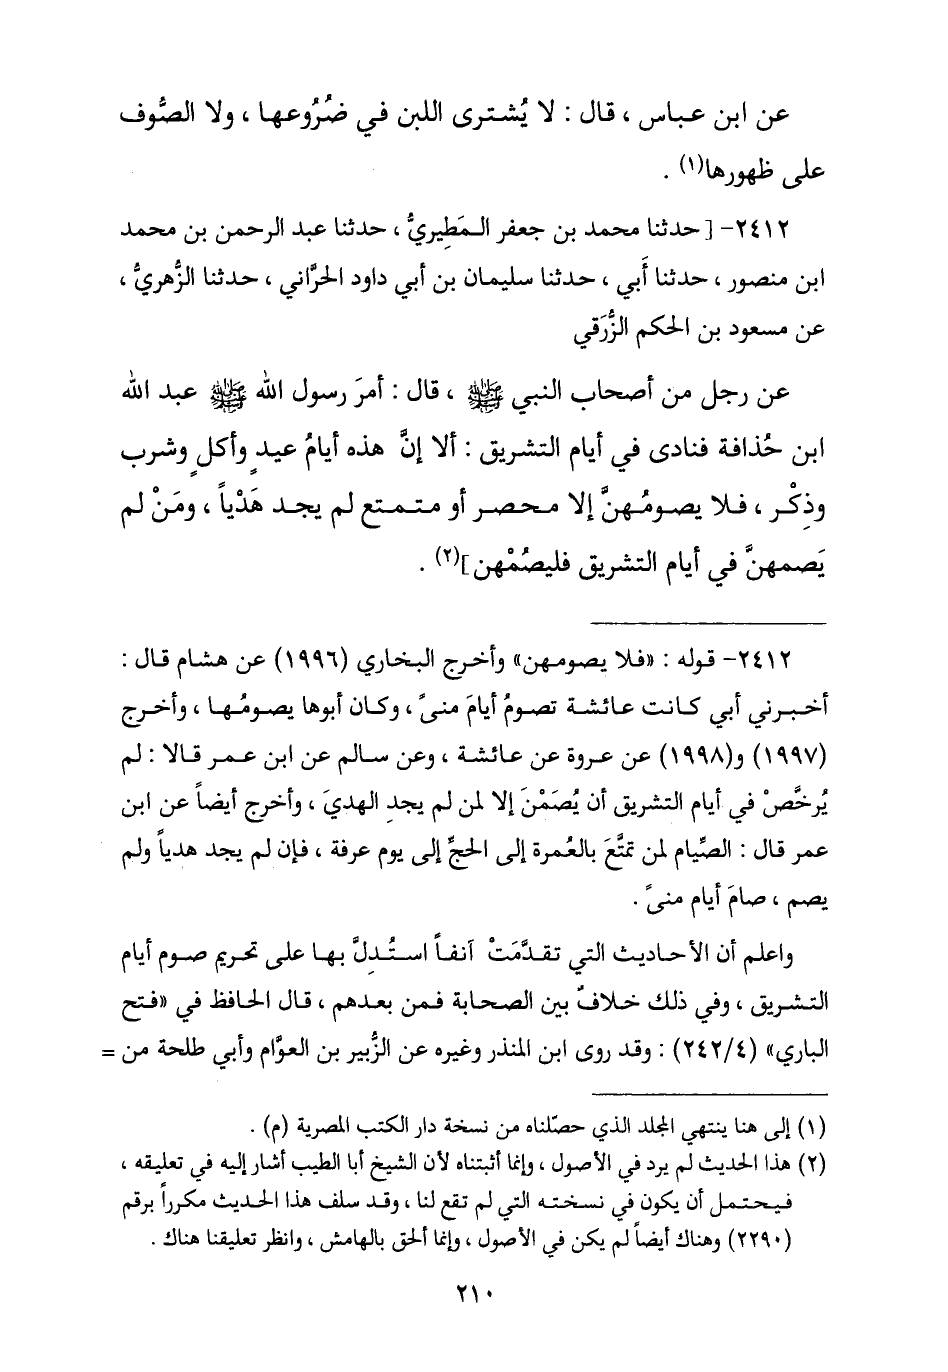 عن ابن عباس ، قال : لا يُشترى اللبن في ضُرُوعها ، ولا الصُّوف
على ظهورها(١) .
٢٤١٢- [ حدثنا محمد بن جعفر المَطِيريُّ ، حدثنا عبد الرحمن بن محمد
ابن منصور ، حدثنا أَبي ، حدثنا سليمان بن أبي داود الحرَّاني ، حدثنا الزُّهريُّ ،
عن مسعود بن الحكم الزُّرَقي
عن رجل من أصحاب النبي ﷺ ، قال : أمرَ رسول الله ﷺ عبد الله
ابن حُذافة فنادى في أيام التشريق : ألا إنَّ هذه أيامُ عيدٍ وأكلٍ وشرب
وذِكْر ، فلا يصومُهنَّ إلا محصر أو متمتع لم يجد هَدْياً ، ومَنْ لم
يَصمهنَّ في أيام التشريق فليصُمْهن ](٢) .
٢٤١٢- قوله : «فلا يصومهن» وأخرج البخاري (١٩٩٦) عن هشام قال :
أخبرني أبي كانت عائشة تصومُ أيامَ منىً ، وكان أبوها يصومُها ، وأخرج
(١٩٩٧) و(١٩٩٨) عن عروة عن عائشة ، وعن سالم عن ابن عمر قالا : لم
يُرخَّصْ في أيام التشريق أن يُصَمْنَ إلا لمن لم يجدِ الهديَ ، وأخرج أيضاً عن ابن
عمر قال : الصِّيام لمن تمتَّعَ بالعُمرة إلى الحجِّ إلى يوم عرفة ، فإن لم يجد هدياً ولم
يصم ، صامَ أيام منىً .
واعلم أن الأحاديث التي تقدَّمَتْ آنفاً استُدِلَّ بها على تحريم صوم أيام
التشريق ، وفي ذلك خلافٌ بين الصحابة فمن بعدهم ، قال الحافظ في «فتح
الباري» (٢٤٢/٤) : وقد روى ابن المنذر وغيره عن الزُّبير بن العوَّام وأبي طلحة من =
(١) إلى هنا ينتهي المجلد الذي حصّلناه من نسخة دار الكتب المصرية (م) .
(٢) هذا الحديث لم يرد في الأصول ، وإنما أثبتناه لأن الشيخ أبا الطيب أشار إليه في تعليقه ،
فيحتمل أن يكون في نسخته التي لم تقع لنا ، وقد سلف هذا الحديث مكرراً برقم
(٢٢٩٠) وهناك أيضاً لم يكن في الأصول ، وإنما ألحق بالهامش ، وانظر تعليقنا هناك .
٢١٠